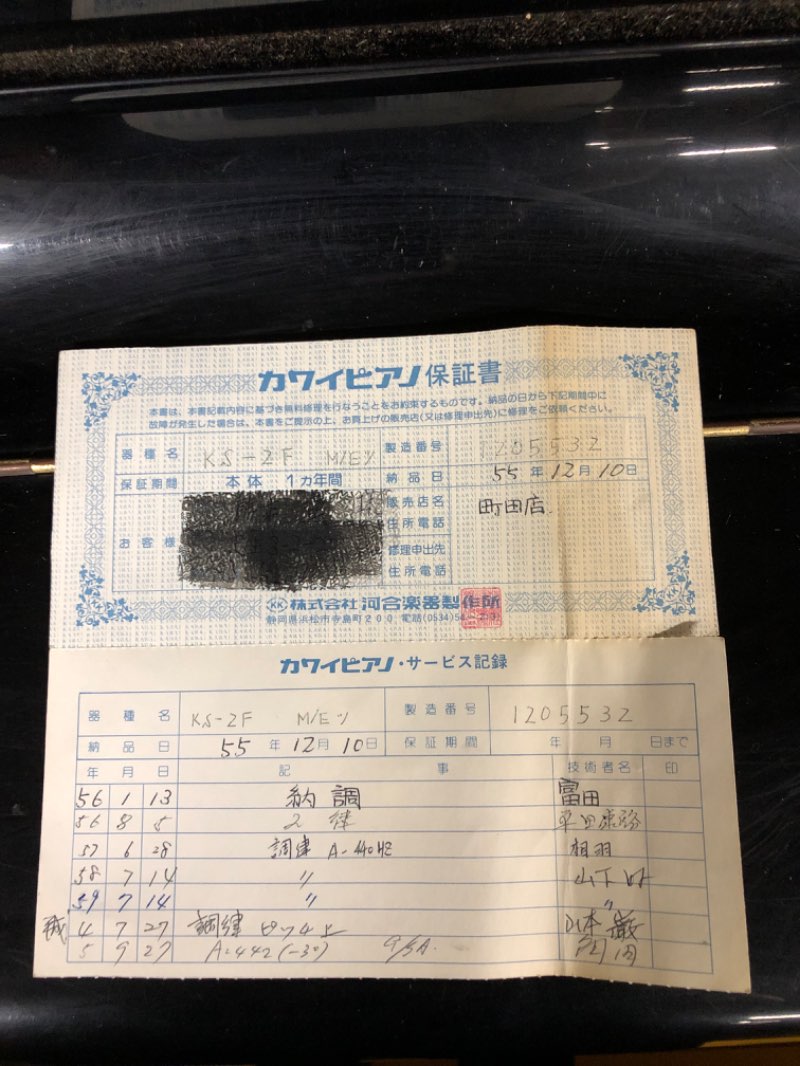 カワイピアノ保証書
本書は、本書記載内容に基づき無料修理を行なうことをお約束するものです。納品の日から下記期間中に
故障が発生した場合は、本書をご提示の上、お買上げの販売店(又は修理申出先)に修理をご依頼ください。
器種名 KS-2F M/Eツ 製造番号 1205532
保証期間 本体 1ヵ年間 納品日 55年12月10日
お客様 販売店名 町田店
住所電話
修理申出先
住所電話
KK 株式会社 河合楽器製作所
静岡県浜松市寺島町200 電話(0534)
カワイピアノ・サービス記録
器種名 KS-2F M/Eツ 製造番号 1205532
納品日 55年12月10日 保証期間 年 月 日まで
年 月 日 記事 技術者名 印
56 1 13 納調 富田
56 8 5 2律
57 6 28 調律 A-440HZ 相羽
58 7 14 〃 山下
59 7 14 〃 〃
4 7 27 調律 ピッチ上 山本
5 9 27 A=442(-3°)